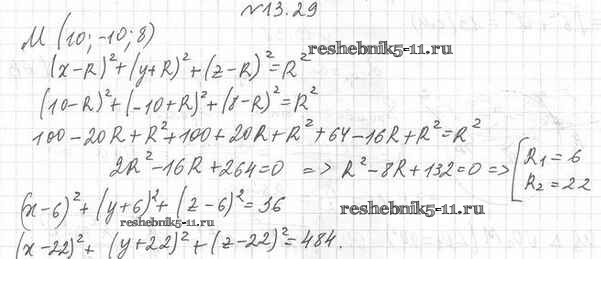 №13.29
M (10; -10; 8)
reshebnik5-11.ru
(x-R)²+(y+R)²+(z-R)²=R²
(10-R)²+(-10+R)²+(8-R)²=R²
100-20R+R²+100+20R+R²+64-16R+R²=R²
2R²-16R+264=0 => R²-8R+132=0 => [R₁=6
R₂=22
(x-6)²+(y+6)²+(z-6)²=36
reshebnik5-11.ru
reshebnik5-11.ru
(x-22)²+(y+22)²+(z-22)²=484.